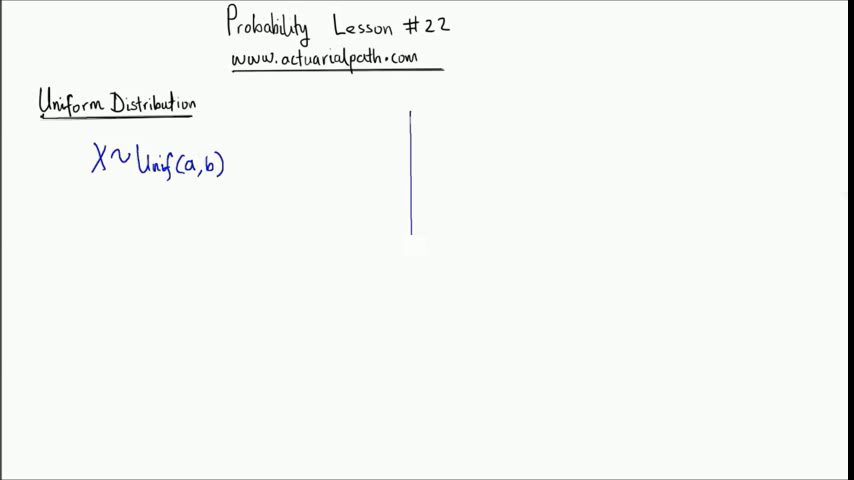 Probability Lesson #22
www.actuarialpath.com
Uniform Distribution
X~Unif(a,b)